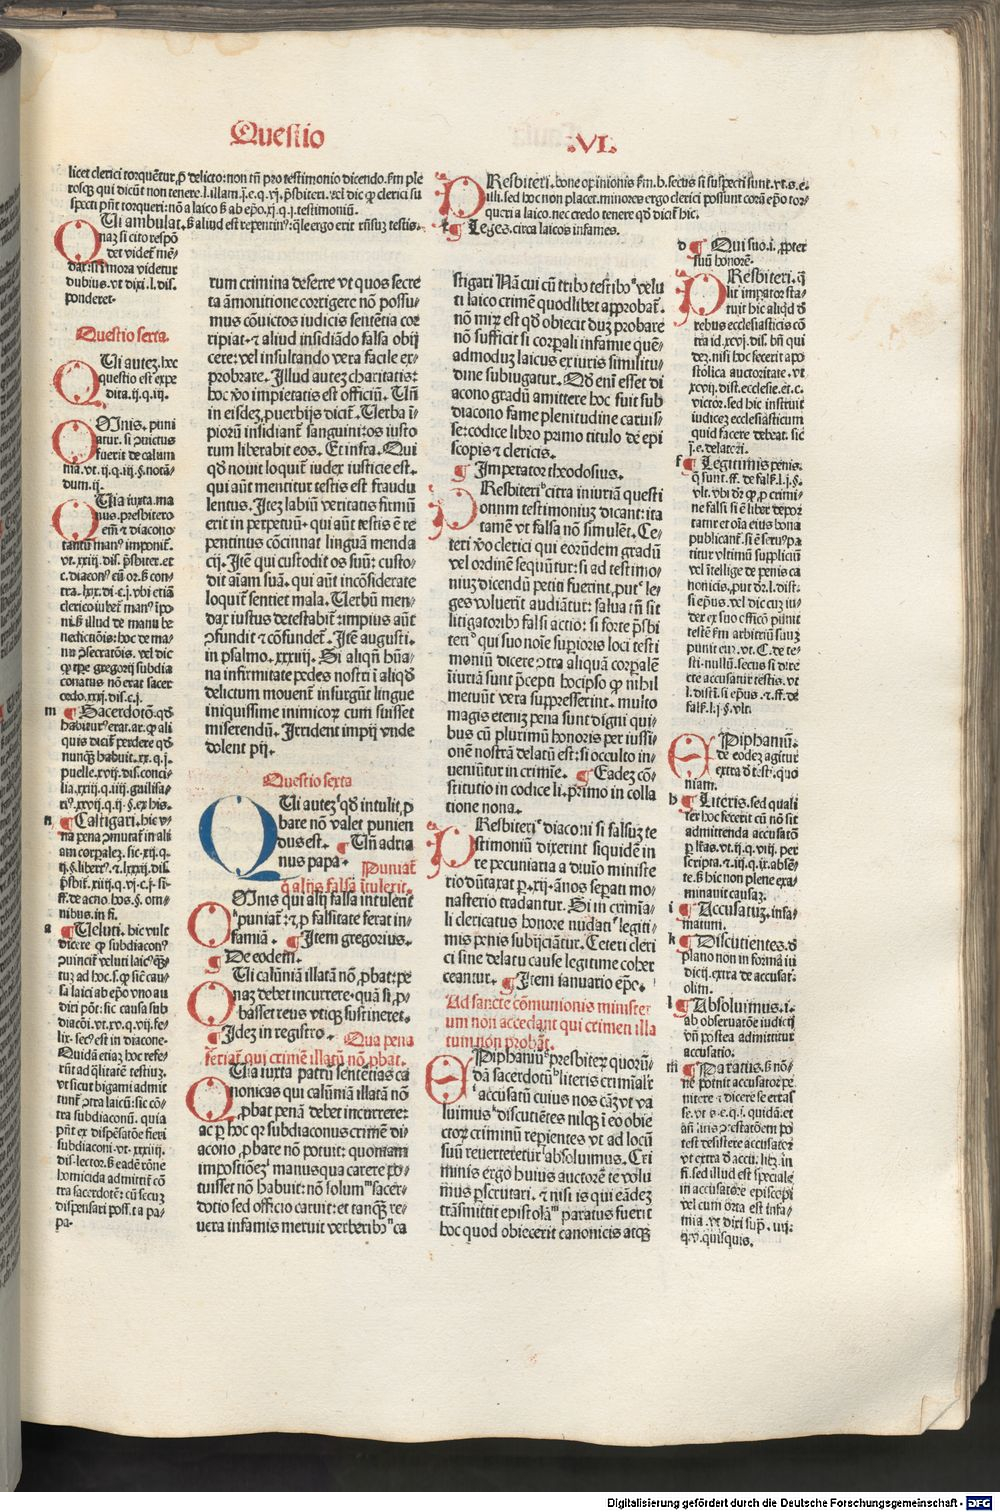 Questio
.VI.
licet clerici torquẽtur, ꝓ delicto: non tñ pro testimonio dicendo. ẜm ple
rosqꝫ qui dicũt non tenere. l. illam. j. e. q. vj. p̃sbiteri. vel dic ꝙ clerici su
specti pñt torqueri: nõ a laico ẜ ab ep̃o. xj. q. j. testimoniũ.
Ui ambulat. ẜ aliud est repentinꝰ: q̃le ergo erit rñsuꝫ testis.
naꝫ si cito respõ
det videt᷑ mẽ-
dax: si moza videtur
dubius. vt dixi. l. dis.
ponderet.
Questio sexta.
Ui auteꝫ. hec
questio est expe
dita. ij. q. iij.
Mnis. puni
atur. si ꝯuictus
fuerit de calum
nia. vt. ij. q. iij. §. notã-
dum. ij.
Uia iuxta. ma
nus. presbitero
em̃ ⁊ diacono
tantũ manꝰ imponit᷑.
vt. xxiij. dis. p̃sbiter. et
c. diaconꝰ cũ or. ẜ con-
tra. lxx. di. c. j. vbi etiã
clerico iubet᷑ manꝰ ĩpo
ni. ẜ illud de manu be
nedictiõis: hoc de ma-
nu ꝯsecratõis. vel dic
ꝙ tꝑe gregorij subdia
conatus nõ erat sacer
cedo. xxj. dis. c. j.
m ¶ Sacerdotõ. qđ
habiturꝰ erat. ar. ꝙ ali
quis dicit᷑ perdere qđ
nunqꝫ habuit. xx. q. j.
puelle. xvij. dis. conci-
lia. xxij. q. iiij. guilisa-
riꝰ. xxvij. q. ij. §. ex his.
n ¶ Castigari. hic v-
na pena ꝯmutat᷑ in ali
am corpaleꝫ. sic. xij. q.
ij. §. liberꝰ. ⁊. lxxxj. dis.
p̃sbit. xiiij. q. vj. c. j. si-
ff. de acno. hos. §. om-
nibus. in fi.
a ¶ Ueluti. hic vult
dicere ꝙ subdiaconꝰ
ꝯuincit᷑ veluti laicꝰ qꝫ-
tuꝫ ad hoc. s. ꝙ siẽ cau-
sa laici ab ep̃o vno au
diri põt: sic causa sub
diacõi. vt. xv. q. vij. fe-
lix. secꝰ est in diacone.
Quidã etiaꝫ hoc refe-
rũt ad q̃litatẽ testiuꝫ.
vt sicut bigami admit
tunt᷑ ꝯtra laicũ: sic cõ-
tra subdiaconũ. quia
pñt ex dispẽsatõe fieri
subdiaconi. vt. xxxiiij.
dis. lector. ẜ eadẽ rõne
homicida admittit᷑ cõ
tra sacerdotẽ: cũ secuꝫ
dispensari poss.t a pa-
pa.
rum crimina deferre vt quos secre
ta ãmonitione corrigere nõ possu-
mus cõuictos iudicis sentẽtia cor
ripiat. ⁊ aliud insidiãdo falsa obij
cere: vel insultando vera facile ex-
probrare. Illud auteꝫ charitatis:
hoc v̊o impietatis est officiũ. Uñ
in eisdeꝫ ꝓuerbijs dicit᷑. Uerba ĩ-
piorũ insidiant᷑ sanguini: os iusto
rum liberabit eos. Et infra. Qui
qđ nouit loquit᷑ iudex iusticie est.
qui aũt mentitur testis est fraudu
lentus. Iteꝫ labiũ veritatis firmũ
erit in perpetuũ. qui aũt testis ẽ re
pentinus cõcinnat linguã menda
cij. Itẽ qui custodit os suũ: custo-
dit aĩam suã. qui aũt incõsiderate
loquit᷑ sentiet mala. Uerbũ men-
dax iustus detestabit᷑: impius aũt
ꝯfundit ⁊ cõfundet᷑. Itẽ augusti.
in psalmo. xxxiij. Si aliqñ hũa-
na infirmitate pedes nostri ĩ aliqđ
delictum mouent᷑ insurgũt lingue
iniquissime inimicoꝝ cum fuisset
miserendũ. Irrident impij vnde
dolent pij.
Questio sexta
Ui auteꝫ qđ intulit, ꝓ
bare nõ valet punien
dus est. ¶ Uñ adria
nus papa. Puniat᷑
q̃ alijs falsa ĩtulerit.
Mnis qui alij falsa intulerit
puniat᷑: ⁊, ꝓ falsitate ferat in-
famiã. ¶ Item gregorius.
¶ De eodem.
Ui calũniã illatã nõ, ꝓbat: pe
naꝫ debet incurrere. quã si, ꝓ-
basset reus vtiqꝫ sustineret.
¶ Ideꝫ in registro. Qua pena
feriat᷑ qui crimẽ illatũ nõ, ꝓbat.
Uia iuxta patrũ sentẽtias ca
nonicas qui calũniã illatã nõ
ꝓbat penã debet incurrere:
ac ꝑ hoc qꝛ subdiaconus crimẽ di-
acono, ꝓbare nõ potuit: quoniam
impostiõeꝫ manus qua carere po-
tuisset nõ habuit: nõ solum sacer-
dotio sed officio caruit: et tanqꝫ re-
uera infamis meruit verberibꝰ ca
Resbiteri. bone opinionis ẜm. b. secus si suspecti sunt. vt. s. e.
illi. sed hoc non placet. minores ergo clerici possunt corã ep̃o tor-
queri a laico. nec credo tenere qđ dicit᷑ hic.
¶ Leges. circa laicos infames.
stigari Nã cui cũ tribꝰ testibꝰ velu
ti laico crimẽ quodlibet approbat᷑.
nõ miꝝ est qđ obiecit duꝫ probare
nõ sufficit si corpali infamie quẽ-
admoduꝫ laicus ex iuris similitu-
dine subiugatur. Qđ enĩ esset di
acono gradũ amittere hoc fuit sub
diacono fame plenitudine caruis-
se: codice libro primo titulo de epi
scopis ⁊ clericis.
¶ Imperator theodosius.
Resbiteri citra iniuriã questi
onum testimoniuꝫ dicant: ita
tamẽ vt falsa nõ simulẽt. Ce-
teri v̊o clerici qui eorũdem gradũ
vel ordinẽ sequũtur: si ad testimo-
niuꝫ dicendũ petiti fuerint, put le-
ges voluerũt audiãtur: salua tñ sit
litigatoribꝰ falsi actio: si forte p̃sbi
teri qui suo noĩe supioris loci testi
moniũ dicere ꝯtra aliquã corpalẽ
ĩiuriã sunt p̃cepti hoc ipso ꝙ nihil
metuũt vera suppresserint. multo
magis eteniꝫ pena sunt digni qui-
bus cũ plurimũ honoris per iussi-
onẽ nostrã delatũ est: si occulto in-
ueniũtur in crimĩe. ¶ Eadeꝫ cõ-
stitutio in codice li. p̱rimo in colla
tione nona.
Resbiteri diaconi si falsuꝫ te
stimoniũ dixerint siquidẽ in
re pecuniaria a diuĩo ministe
rio dũtaxat ꝑ. xij. ãnos sepati mo-
nasterio tradantur. Si in crimĩa-
li clericatus honore nudati legiti-
mis penis subijciãtur. Ceteri cleri
ci sine delatu cause legitime coher
ceantur. ¶ Item ianuario ep̃o.
Ad sancte cõmunionis minister
ium non accedant qui crimen illa
tum non probãt.
Piphaniũ presbiteꝝ quorũ-
dã sacerdotũ literis crimĩalit᷑
accusatũ cuius nos cãꝫ vt va
luimus discutiẽtes nilqꝫ ĩ eo obie
ctoꝝ criminũ repientes vt ad locũ
suũ reuerteretur absoluimus. Cri
minis ergo huius auctorẽ te volu
mus pscrutari. ⁊ nisi is qui eãdeꝫ
trãsmittit epistolã paratus fuerit
hoc quod obiecerit canonicis atqꝫ
d ¶ Qui suo. i. ꝓpter
suũ honorẽ.
Resbiteri. q̃
lit᷑ impator sta-
tuit hic aliqđ đ
rebus ecclesiasticis cõ
tra id. xcvj. dis. bñ qui
deꝫ. nisi hoc fecerit apo
stolica auctoritate. vt
xcvij. dist. ecclesie. et. c.
victor. sed hic instruit
iudiceꝫ ecclesiasticum
quid facere debeat. sic
j. e. delatori.
f ¶ Legitimis penis.
q̃ sunt. ff. de fals̃. l. j. §.
vlt. vbi dꝛ ꝙ, ꝓ crimi-
ne falsi si ẽ liber depor
tatur et oĩa eius bona
publicant᷑. si ẽ seruꝰ pa
titur vltimũ suppliciũ
vel ĩtellige de penis ca
nonicis. put õr. l. dist.
si ep̃us. vel dic cuꝫ iu-
dex ex suo officõ punit
testẽ ẜm arbitriũ suuꝫ
punit eũ. vt. C. de te-
sti. nullũ. secus si dire
cte accusatur testis. vt
l. disti. si ep̃us. ⁊. ff. de
fals̃. l. j. §. vlt.
Piphaniũ.
de eodeꝫ agitur
extra đ testi. quo
niam.
h ¶ Literis. sed quali
ter hoc fecerit cũ nõ sit
admittenda accusatõ
ꝑ lr̃as. vt. ij. q. viij. per
scripta. ⁊. iij. q. ix. absẽ-
te. ẜ hic non plene exa
minauit causaꝫ.
i ¶ Accusatuꝫ. infa-
matum.
k ¶ Discutientes. đ
plano non in forma iu
dicij. extra de accusat᷑.
olim.
l ¶ Absoluimus. i.
ab obseruatõe iudicij
vñ postea admittitur
accusatio.
m ¶ Paratus. ẜ nõ-
ne potuit accusator pe
nitere ⁊ dicere se erras
se. vt. s. e. q. j. quidã. et
añ litis ꝯtestatõem po
test desistere accusator
vt extra đ accu. licꝫ. in
fi. sed illud est speciale
in accusatõe episcopi
vel cum orta est infa-
mia. vt dixi sup̃. iiij.
q. v. quisquis.
Digitalisierung gefördert durch die Deutsche Forschungsgemeinschaft - DFG